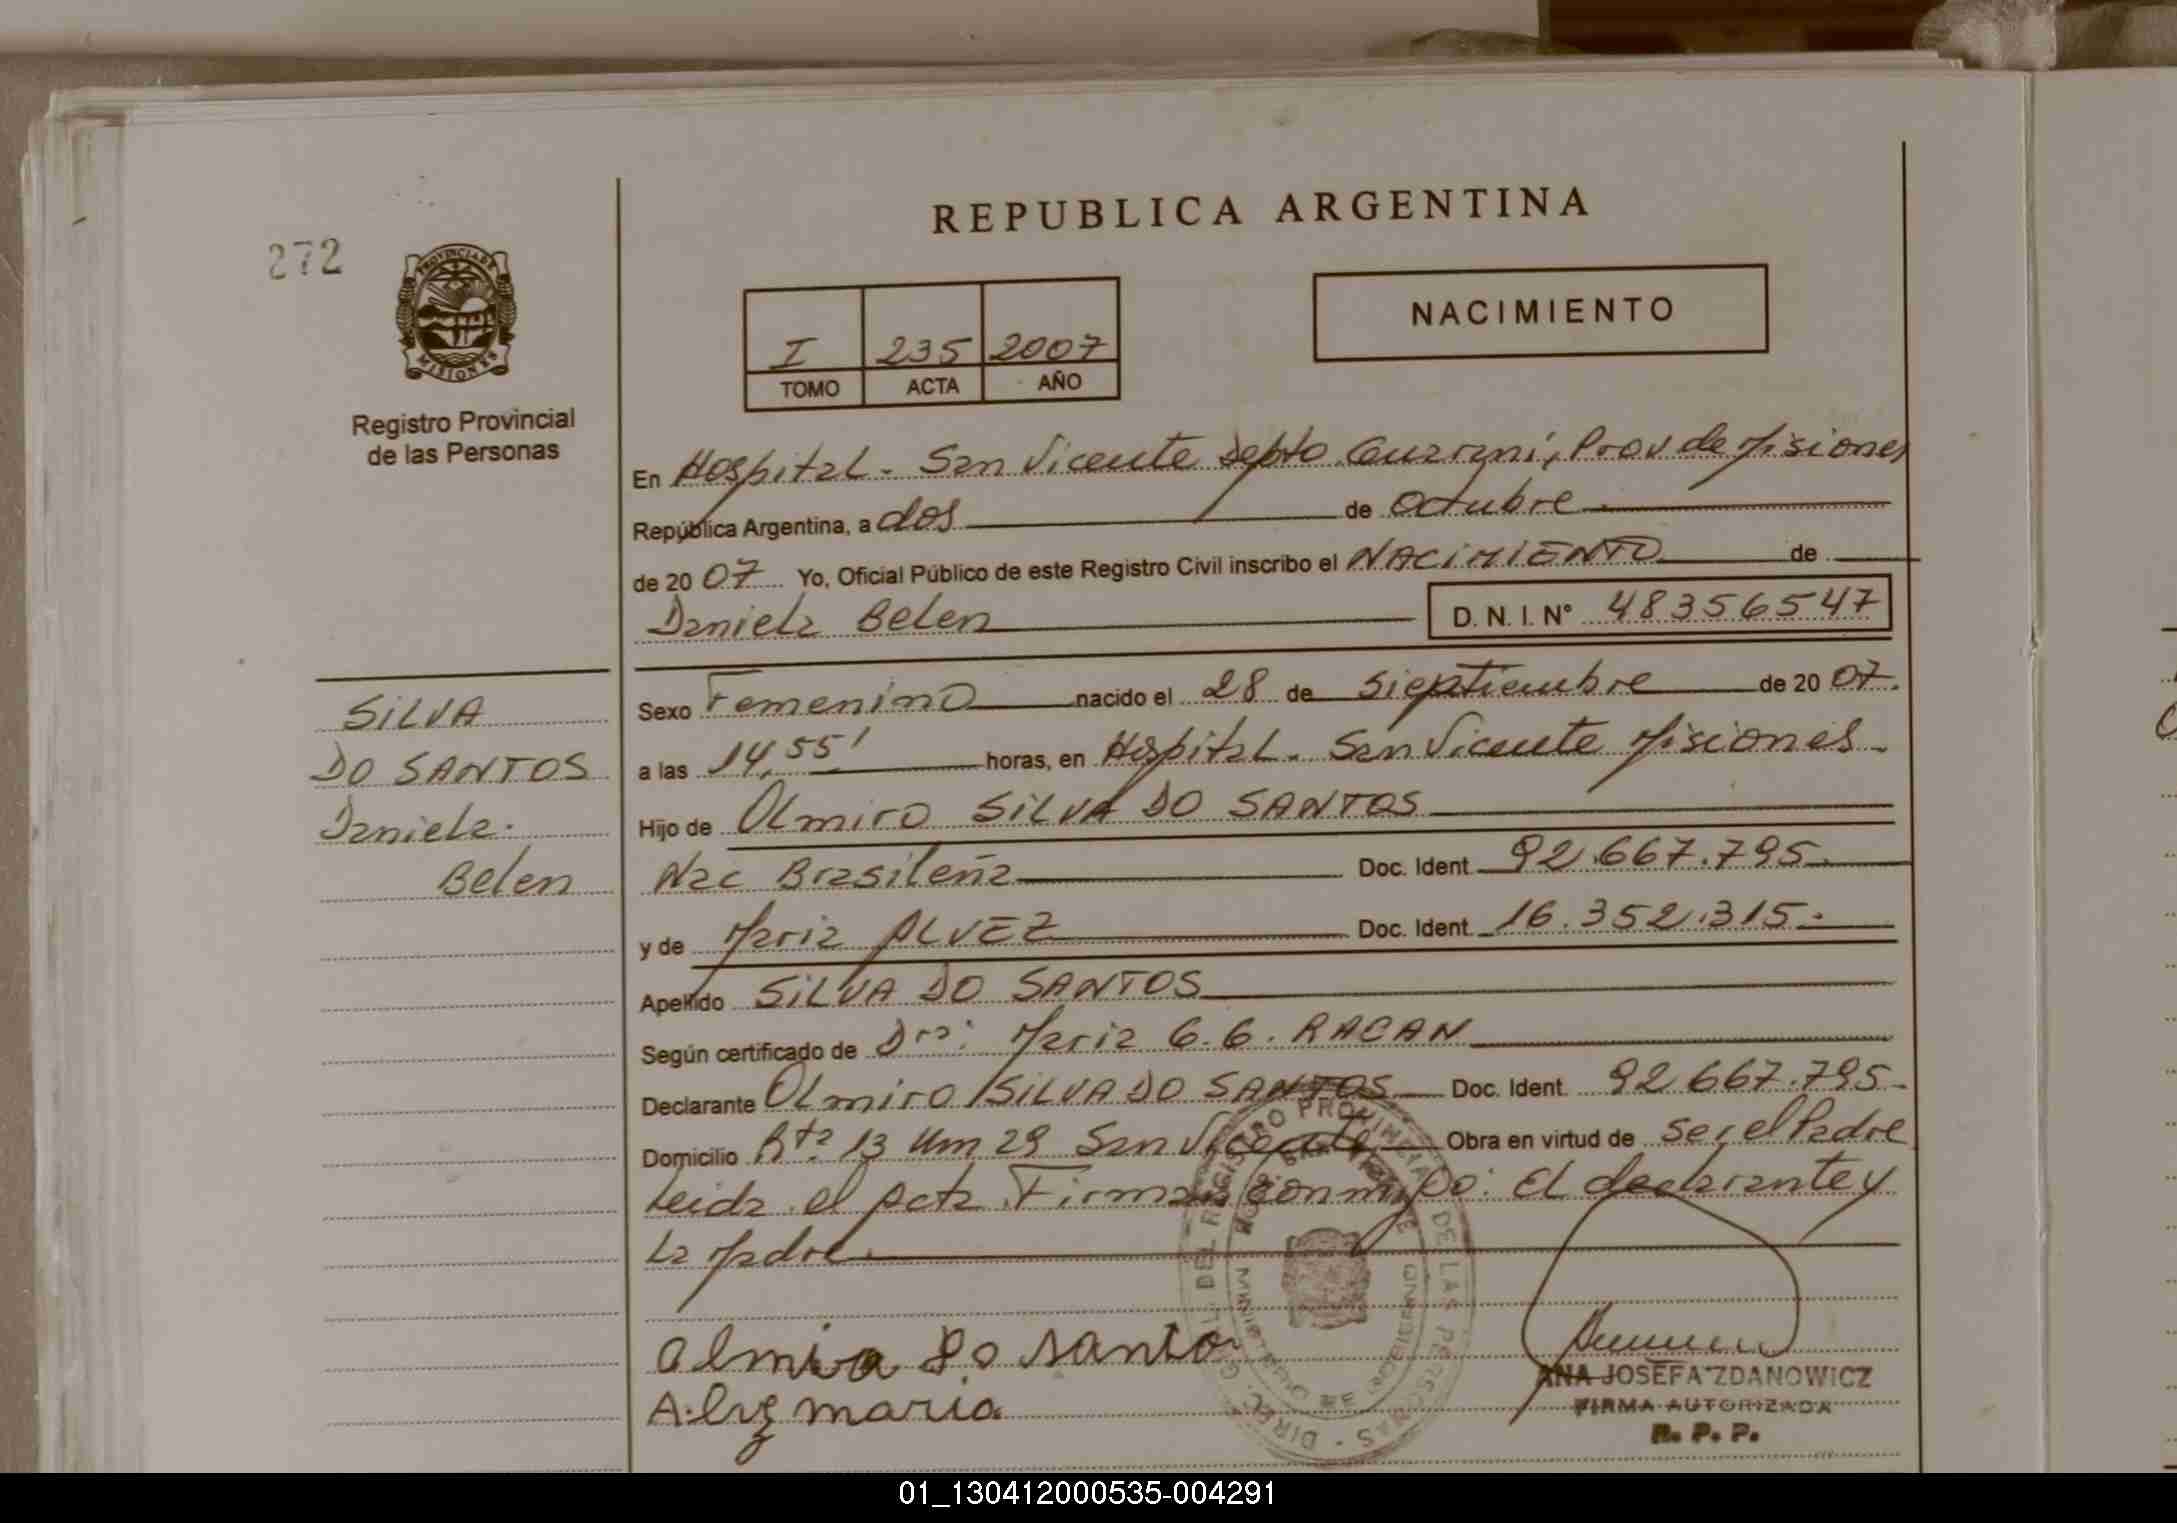 272
PROVINCIA DE
MISIONES
Registro Provincial
de las Personas
REPUBLICA ARGENTINA
I 235 2007
TOMO ACTA AÑO
NACIMIENTO
En Hospital - San Vicente Depto Guarani, Prov de Misiones
República Argentina, a dos de Octubre
de 20 07 Yo, Oficial Público de este Registro Civil inscribo el NACIMIENTO de
Daniela Belen D. N. I. N° 48356547
SILVA
DO SANTOS
Daniela.
Belen
Sexo Femenino nacido el 28 de Sieptiembre de 20 07.
a las 14,55' horas, en Hospital - San Vicente Misiones -
Hijo de Olmiro SILVA DO SANTOS
Nac Brasileña Doc. Ident. 92.667.795.
y de Maria ALVEZ Doc. Ident. 16.352.315.-
Apellido SILVA DO SANTOS
Según certificado de Dra: Maria G. G. RAGAN
Declarante Olmiro SILVA DO SANTOS Doc. Ident. 92 667.795-
Domicilio Rta 13 Km 29 San Vicente Obra en virtud de ser el Padre
Leida el acta Firman conmigo: El declarante y
La Madre.
olmiro do santo
Alvz maria
ANA JOSEFA ZDANOWICZ
FIRMA AUTORIZADA
R. P. P.
01_130412000535-004291